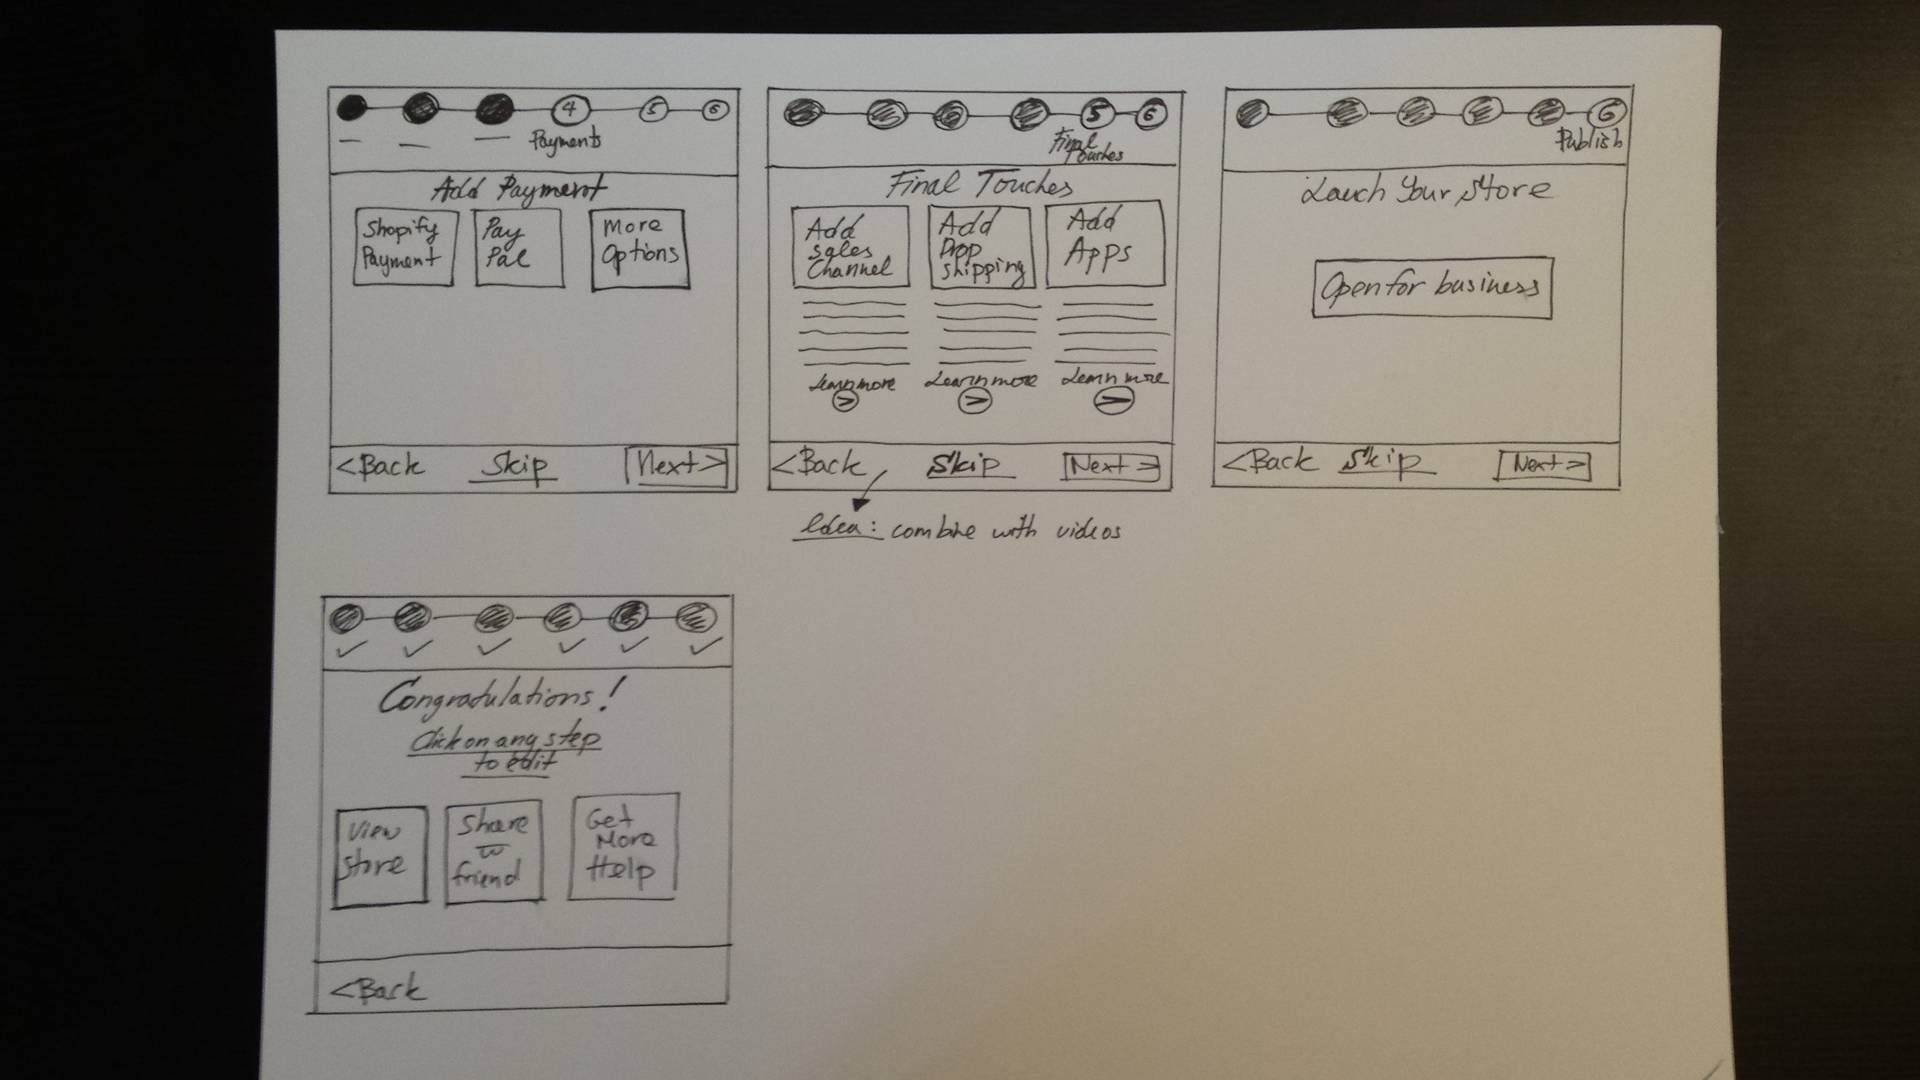 4 5 6
Payments
Add Payment
Shopify
Payment
Pay
Pal
More
Options
<Back Skip Next>
5 6
Final
Touches
Final Touches
Add
Sales
Channel
Add
Drop
Shipping
Add
Apps
Learn more Learn more Learn more
> > >
<Back Skip Next >
Idea: combine with videos
6
Publish
Lauch Your Store
Open for business
<Back Skip Next >
Congratulations!
Click on any step
to edit
View
Store
Share
w
friend
Get
More
Help
<Back